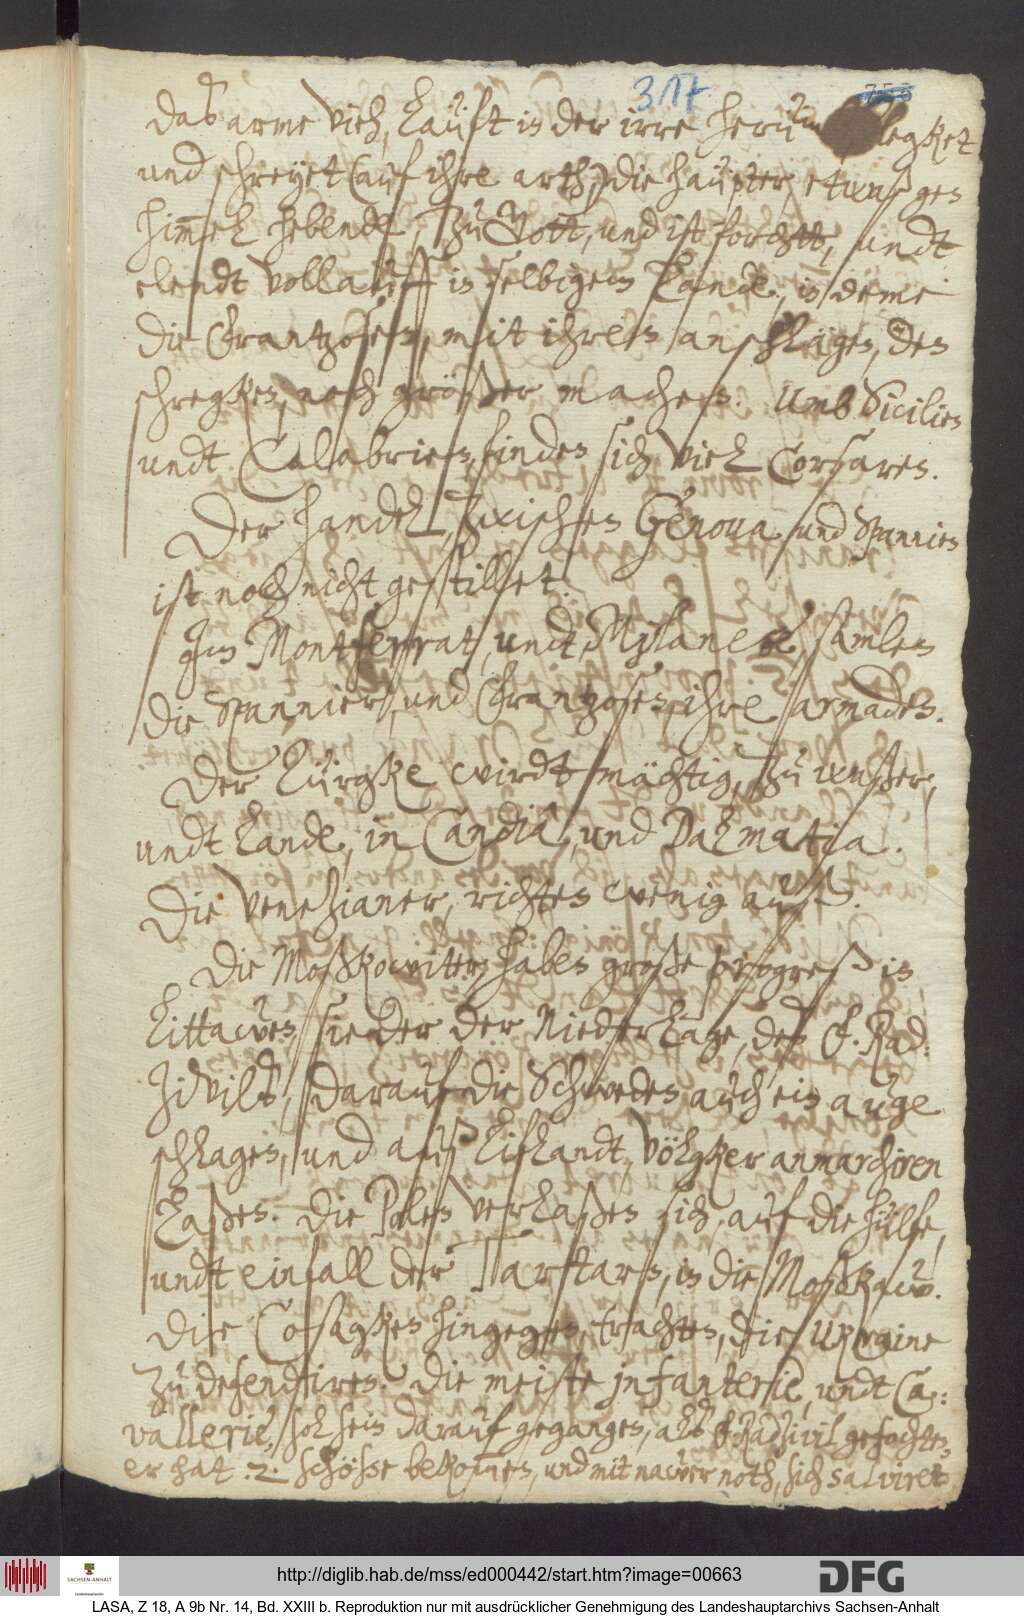 317
das arme Vieh, läuft in der irre herüm
und schreyet (auf ihre arth,) die haüpter, etwas gen
him̅el hebende, zu Gott, und ist forchtt, undt
elendt vollauff in selbigem Lande, in deme
die Frantzosen, mit ihren anschlägen, den
schregken, noch größer machen. Umb Sicilien
undt Calabrien, finden sich viel Corsaren.
Der handel zwischen Genoua und Spannien
ist noch nicht gestillet.
Im Montferrat, undt Milanese, samlen
die Spannier, und Frantzosen ihre armaden.
Der Türgke wirdt mächtig, zu waßer,
undt Lande, in Candia, und Dalmatia.
Die Venezianer, richten wenig auß.
Die Moßkowitter, haben große progreß in
Littawen, sieder der Niederlage, des F. Rad-
zivils, darauf die Schweden auch ein auge
schlagen, und auß Lifflandt, völgker anmarchiren
laßen. Die Polen verlaßen sich, auf die hülfe,
undt einfall der Tartarn, in die Moßkaw.
Die Cosagken hingegen, trachten, die Ukraine
zu defendiren. Die meiste infanterie, undt Ca-
vallerie, sol sein darauf gegangen, als F. Radzivil gefochten,
er hat .2. schöße bekom̅en, und mit nawer noth, sich salviret
http://diglib.hab.de/mss/ed000442/start.htm?image=00663
DFG
SACHSEN-ANHALT
LASA, Z 18, A 9b Nr. 14, Bd. XXIII b. Reproduktion nur mit ausdrücklicher Genehmigung des Landeshauptarchivs Sachsen-Anhalt